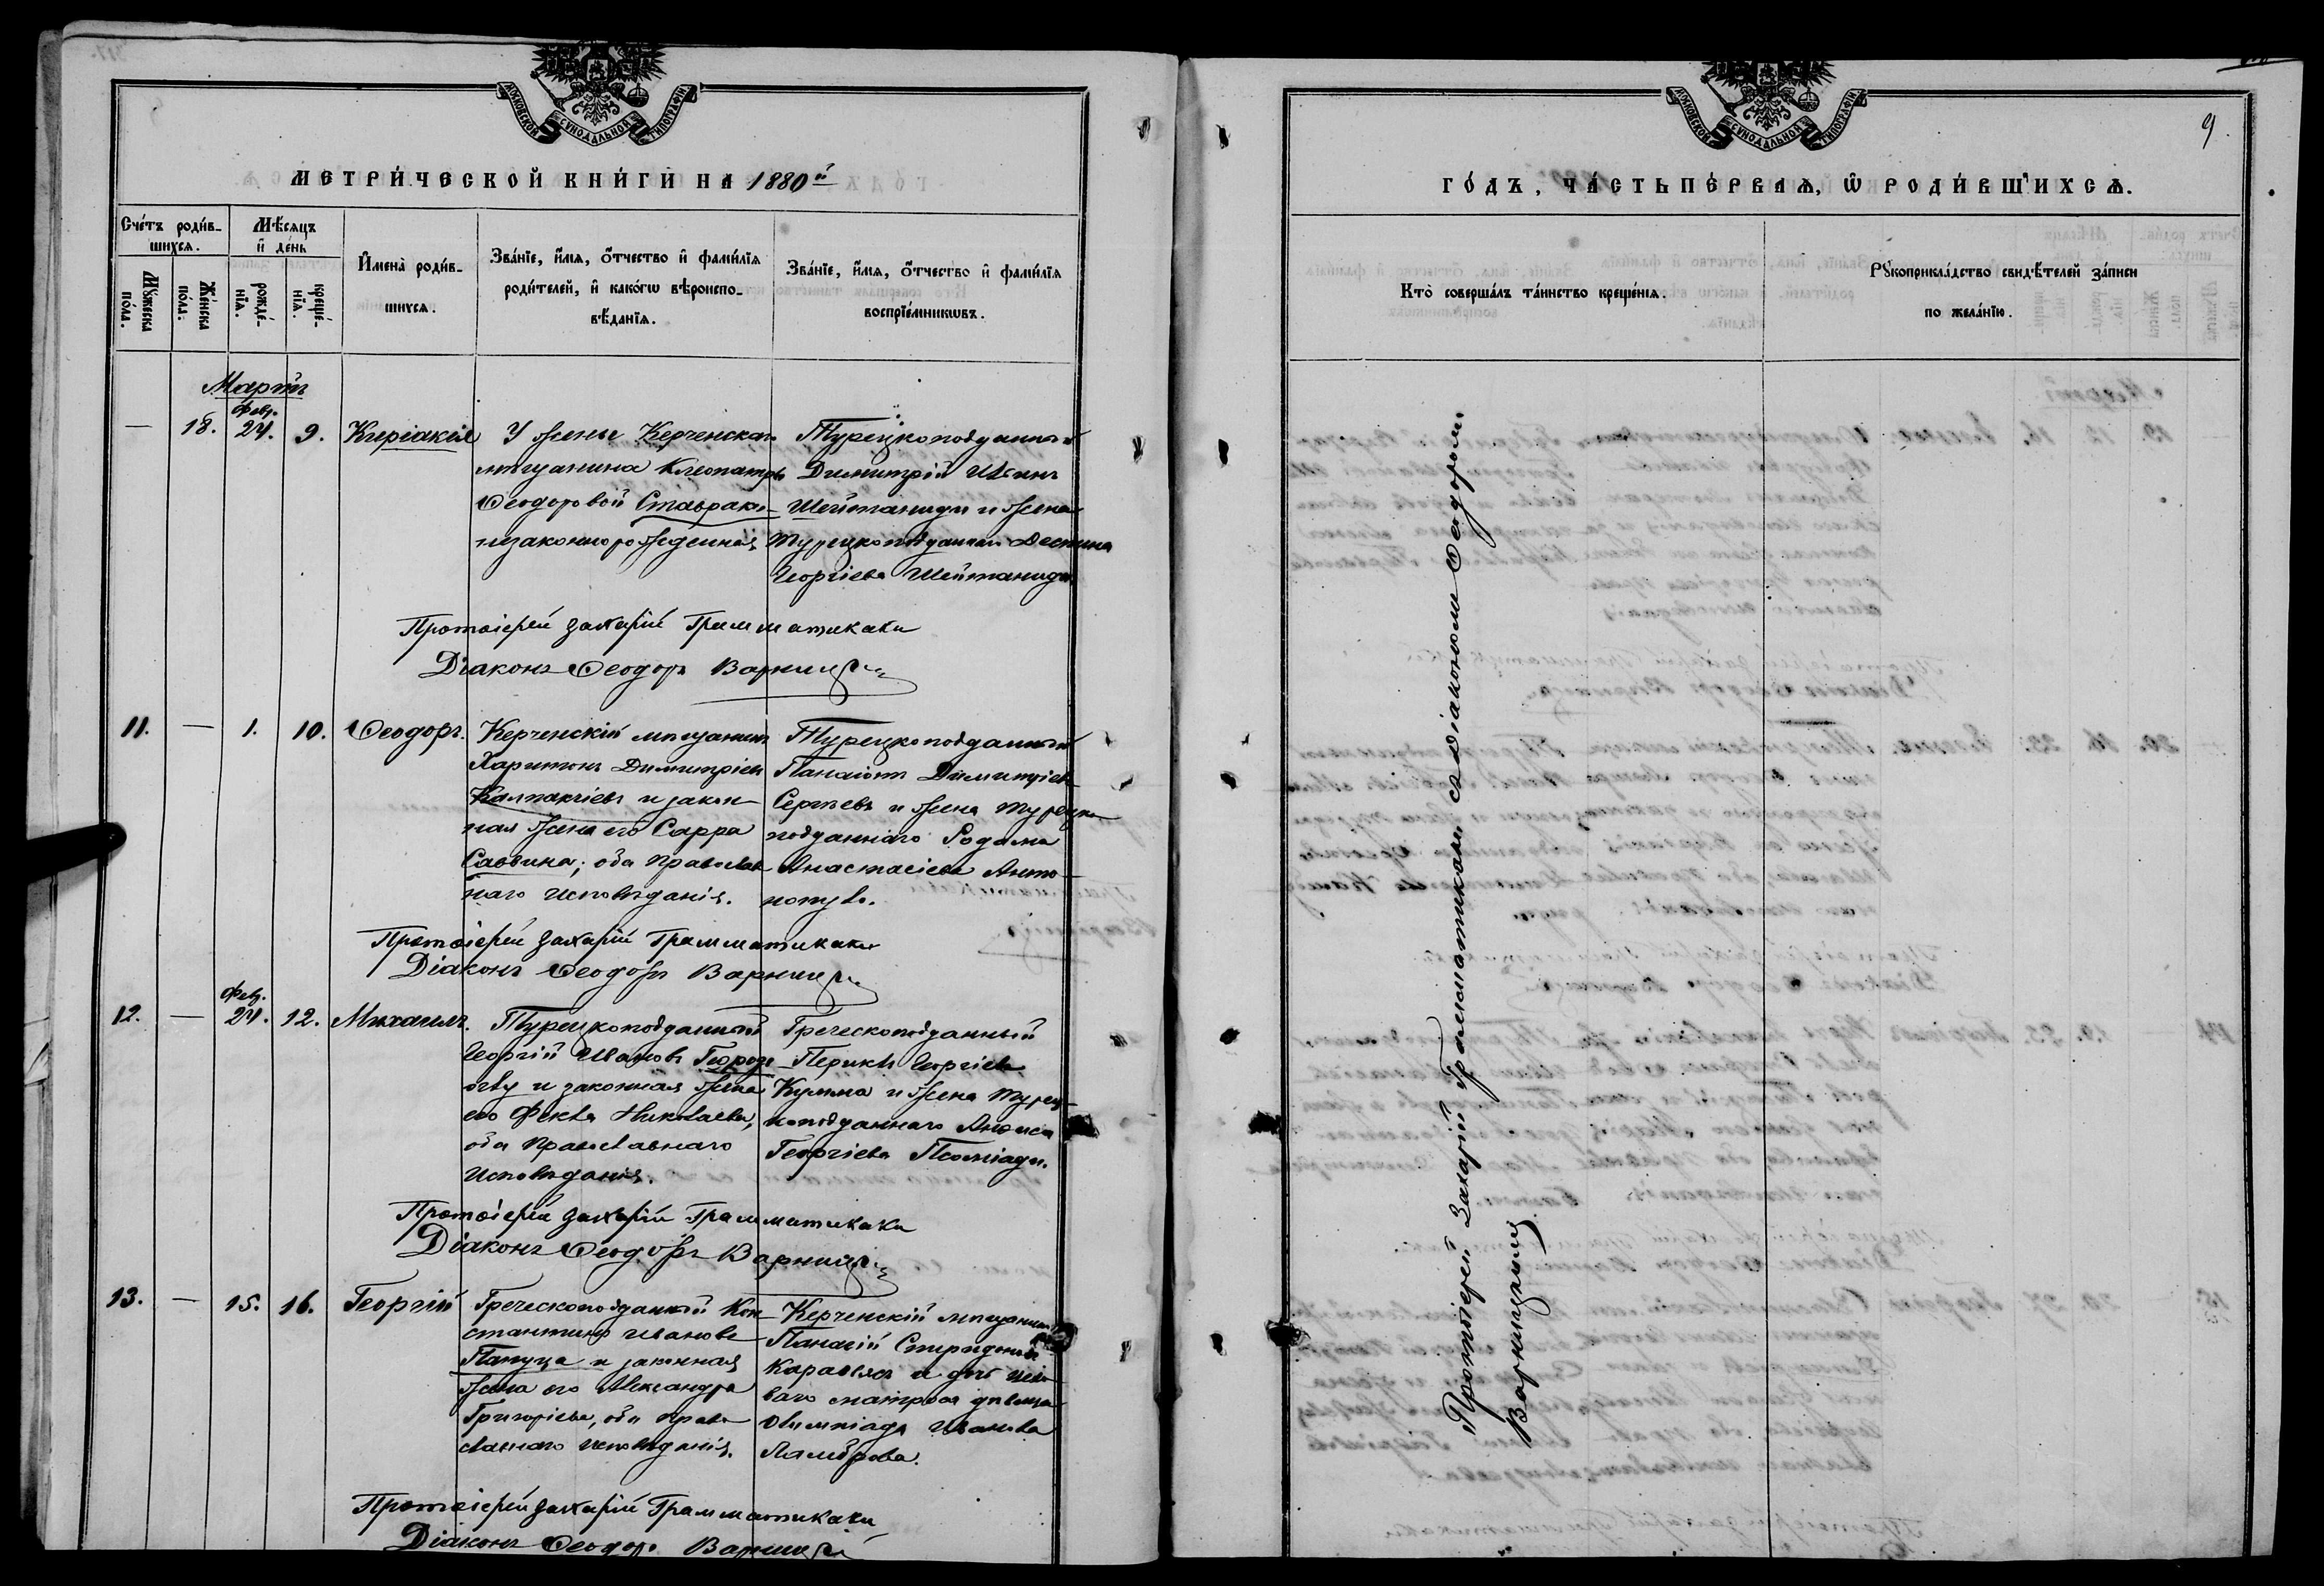 МОСКОВСКОЙ СѴНОДАЛЬНОЙ ТИПОГРАФІИ
МЕТРИ́ЧЕСКОЙ КНИ́ГИ НА 1880й
Сче́тъ роди́в-
шихся.
Мꙋ́жеска
по́ла.
Же́нска
по́ла.
Мѣ́сяцъ
и҆ де́нь
рожде́-
нїѧ.
креще́-
нїѧ.
И҆мена̀ роди́в-
шихсѧ.
Зва́нїе, и҆́мѧ, ѻ҆́тчество и҆ фами́лїѧ
роди́телей, и҆ како́гѡ вѣроиспо-
вѣ́данїѧ.
Зва́нїе, и҆́мѧ, ѻ҆́тчество и҆ фами́лїѧ
воспрїе́мникѡвъ.
Мартъ
— 18. Фев. 24. 9. Киріакія
У жены Керченскаго
мѣщанина Клеопатры
Ѳеодоровой Ставраки
незаконнорожденная
Турецкоподданный
Димитрій Иванъ
Шейтаниди и жена
турецкоподданнаго Деспина
Георгіева Шейтаниди
Протоіерей Захарій Грамматикаки
Діаконъ Ѳеодоръ Варницкій
11. — 1. 10. Ѳеодоръ.
Керченскій мѣщанинъ
Харитонъ Димитріевъ
Калпакчіевъ и закон-
ная жена его Сарра
Саввина; оба православ-
наго исповѣданія.
Турецкоподданный
Панаіотъ Димитріевъ
Сергѣевъ и жена турецко
подданнаго Родама
Анастасіева Анто-
Протоіерей Захарій Грамматикаки
Діаконъ Ѳеодоръ Варницкій
12. — Фев. 24. 12. Михаилъ.
Турецкоподданный
Георгій Ивановъ
и законная жена
его Ѳекла Николаева,
оба православнаго
исповѣданія.
Греческоподданный
Периклъ Георгіевъ
и жена турец-
коподданнаго Анѳиса
Георгіева Псоміади.
Протоіерей Захарій Грамматикаки
Діаконъ Ѳеодоръ Варницкій
13. — 15. 16. Георгій
Греческоподданный Кон-
стантинъ Ивановъ
Папуца и законная
жена его Александра
Григоріева, оба право
славнаго исповѣданія.
Керченскій мѣщанинъ
Панагій Спиридоновъ
и дочь
матроса дѣвица
Олимпіада Иванова
Ламброва.
Протоіерей Захарій Грамматикаки
Діаконъ Ѳеодоръ Варницкій
МОСКОВСКОЙ СѴНОДАЛЬНОЙ ТИПОГРАФІИ
9.
ГО́ДЪ, ЧА́СТЬ ПЕ́РВАЯ, Ѡ҆ РОДИ́ВШИХСЯ.
Кто̀ соверша́лъ та́инство креще́нїѧ.
Рꙋкоприкла́дство свидѣ́телей за́писи
по жела́нїю.
Протоіерей Захарій Грамматикаки съ діакономъ Ѳеодоромъ
Варницкимъ